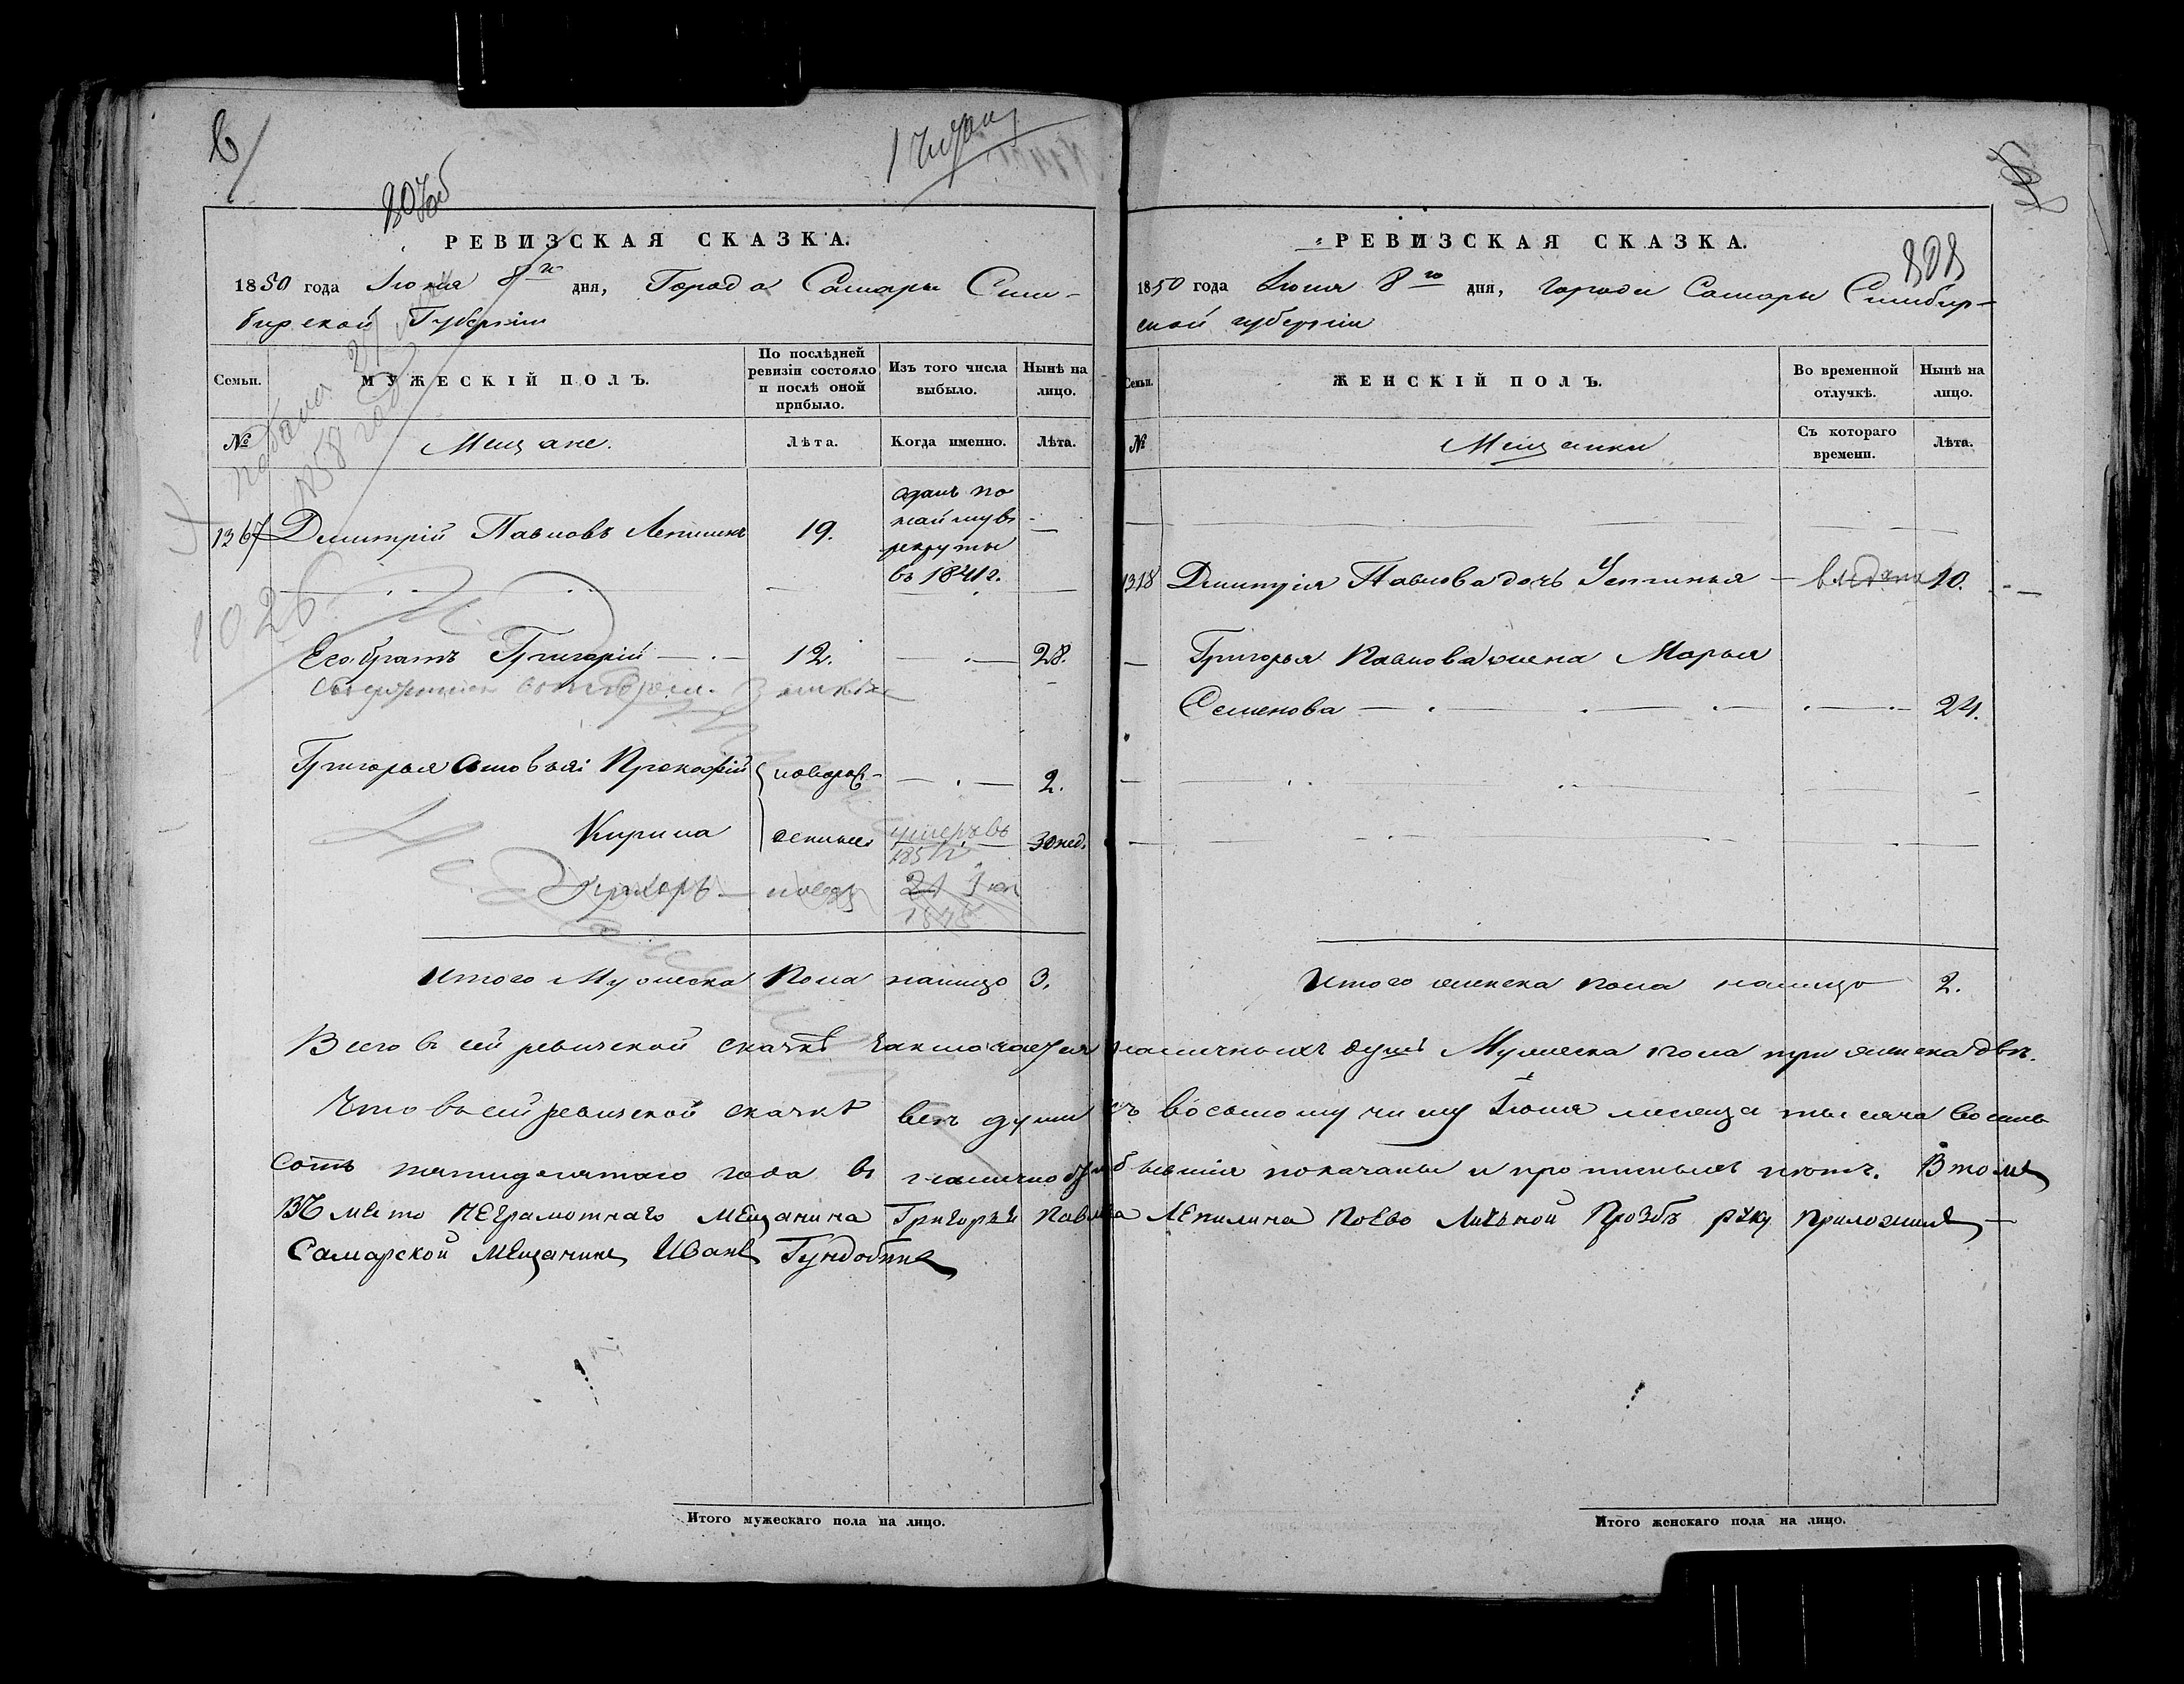 1 чиж
807об
РЕВИЗСКАЯ СКАЗКА.
1850 года Июня 8го дня, Города Самары Сим-
бирской Губерніи
Семьи.
МУЖЕСКІЙ ПОЛЪ.
По послѣдней ревизіи состояло и послѣ оной прибыло.
Изъ того числа выбыло.
Нынѣ на лицо.
№
Мещане.
Лѣта.
Когда именно.
Лѣта.
подана 21
1858 года
1367 Дмитрій Павловъ Лепилинъ 19. отданъ по найму въ рекруты въ 1841г. —
1026
Его братъ Григорій — 12. — 28.
Григорья сыновья: Прокофій новорож- — 2.
Кирила денные умеръ въ 30 нед.
Итого Мужеска Пола налицо 3.
808
РЕВИЗСКАЯ СКАЗКА.
1850 года Июня 8го дня, города Самары Симбир-
ской губерніи
Семьи.
ЖЕНСКІЙ ПОЛЪ.
Во временной отлучкѣ.
Нынѣ на лицо.
№
Мещанки
Съ котораго времени.
Лѣта.
1318 Дмитрія Павлова дочь Устинья — выдана 10.
— Григорья Павлова жена Марья
Семенова — 24.
Итого женска пола налицо 2.
Всего в сей ревизской сказкѣ заключается наличныхъ душъ Мужеска пола три женска двѣ.
Что въ сей ревизской сказкѣ всѣ души къ восьмому числу Июня месяца тысяча восемь
сотъ пятидесятаго года в наличности бывшія показаны и прописныхъ нѣтъ. В томъ
Въместо неграмотнаго мещанина Григорья Павлова Лепилина поево личьной прозбѣ руку приложилъ —
Самарской мещанинъ Иванъ Гундобинъ
Итого мужескаго пола на лицо.
Итого женскаго пола на лицо.